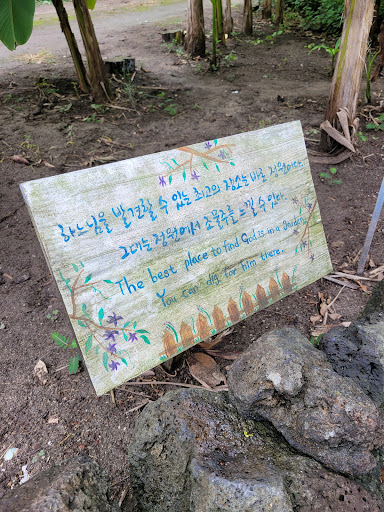 하느님을 발견할 수 있는 최고의 장소는 바로 정원이다.
그대는 정원에서 조물주를 느낄 수 있다.
The best place to find God is in a garden.
You can dig for him there.